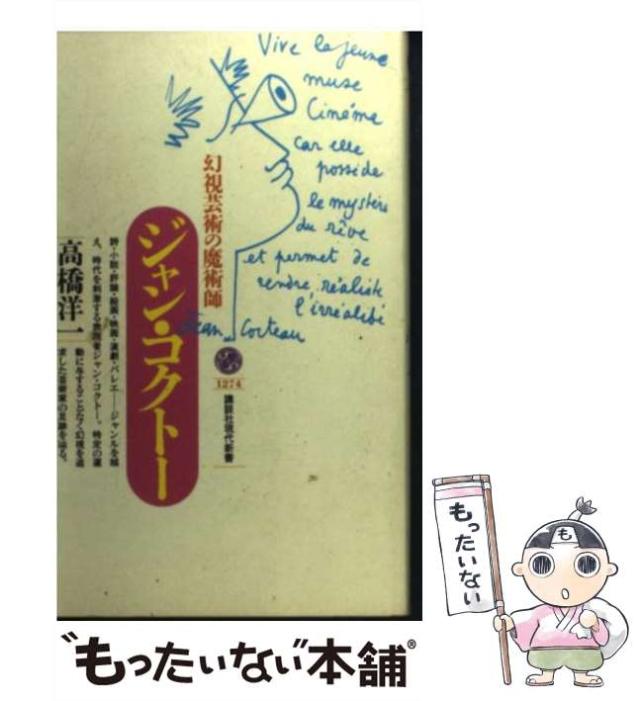 Vive la jeune
muse
Cinéma
car elle
possède
le mystère
du rêve
et permet de
rendre réaliste
l'irréalité
Jean Cocteau
幻視芸術の魔術師
ジャン・コクトー
詩・小説・評論・絵画・映画・演劇・バレエ――ジャンルを越
え、時代を刺激する表現者ジャン・コクトー。特定の運
動に与することなく幻視を追
求した芸術家の足跡を辿る。
高橋洋一
1274
講談社現代新書
もったいない
も
"もったいない"本舗®